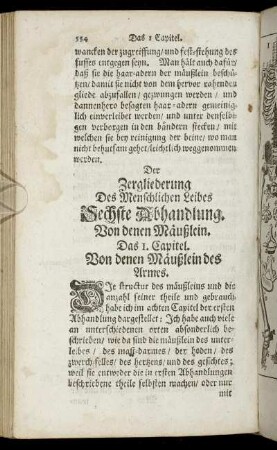 554 Das 1 Capitel.
wancken der zugreiffung/ und fest-stehung des
fusses entgegen seyn. Man hält auch dafür/
daß sie die haar-adern der mäußlein beschü-
tzen/ damit sie nicht von dem hervor rahenden
gliede abzufallen/ gezwungen werden/ und
dannenhero besagten haar-adern gemeinig-
lich einverleibet werden/ und unter denensel-
bigen verborgen in den bändern stecken/ mit
welchen sie bey reinigung der beine/ wo man
nicht behutsam gehet/ leichtlich weggenommen
werden.
Der
Zergliederung
Des Menschlichen Leibes
Sechste Abhandlung.
Von denen Mäußlein.
Das 1. Capitel.
Von denen Mäußlein des
Armes.
DIe structur des mäußleins und die
anzahl seiner theile und gebrauch
habe ich im achten Capitel der ersten
Abhandlung dargestellet: Ich habe auch viele
an unterschiedenen orten absonderlich be-
schrieben/ wie da sind die mäußlein des unter-
leibes/ des mast-darmes/ der hoden/ des
zwerch-felles/ des hertzens/ und des gesichtes;
weil sie entweder die in ersten Abhandlungen
beschriebene theile selbsten machen/ oder nur
mit